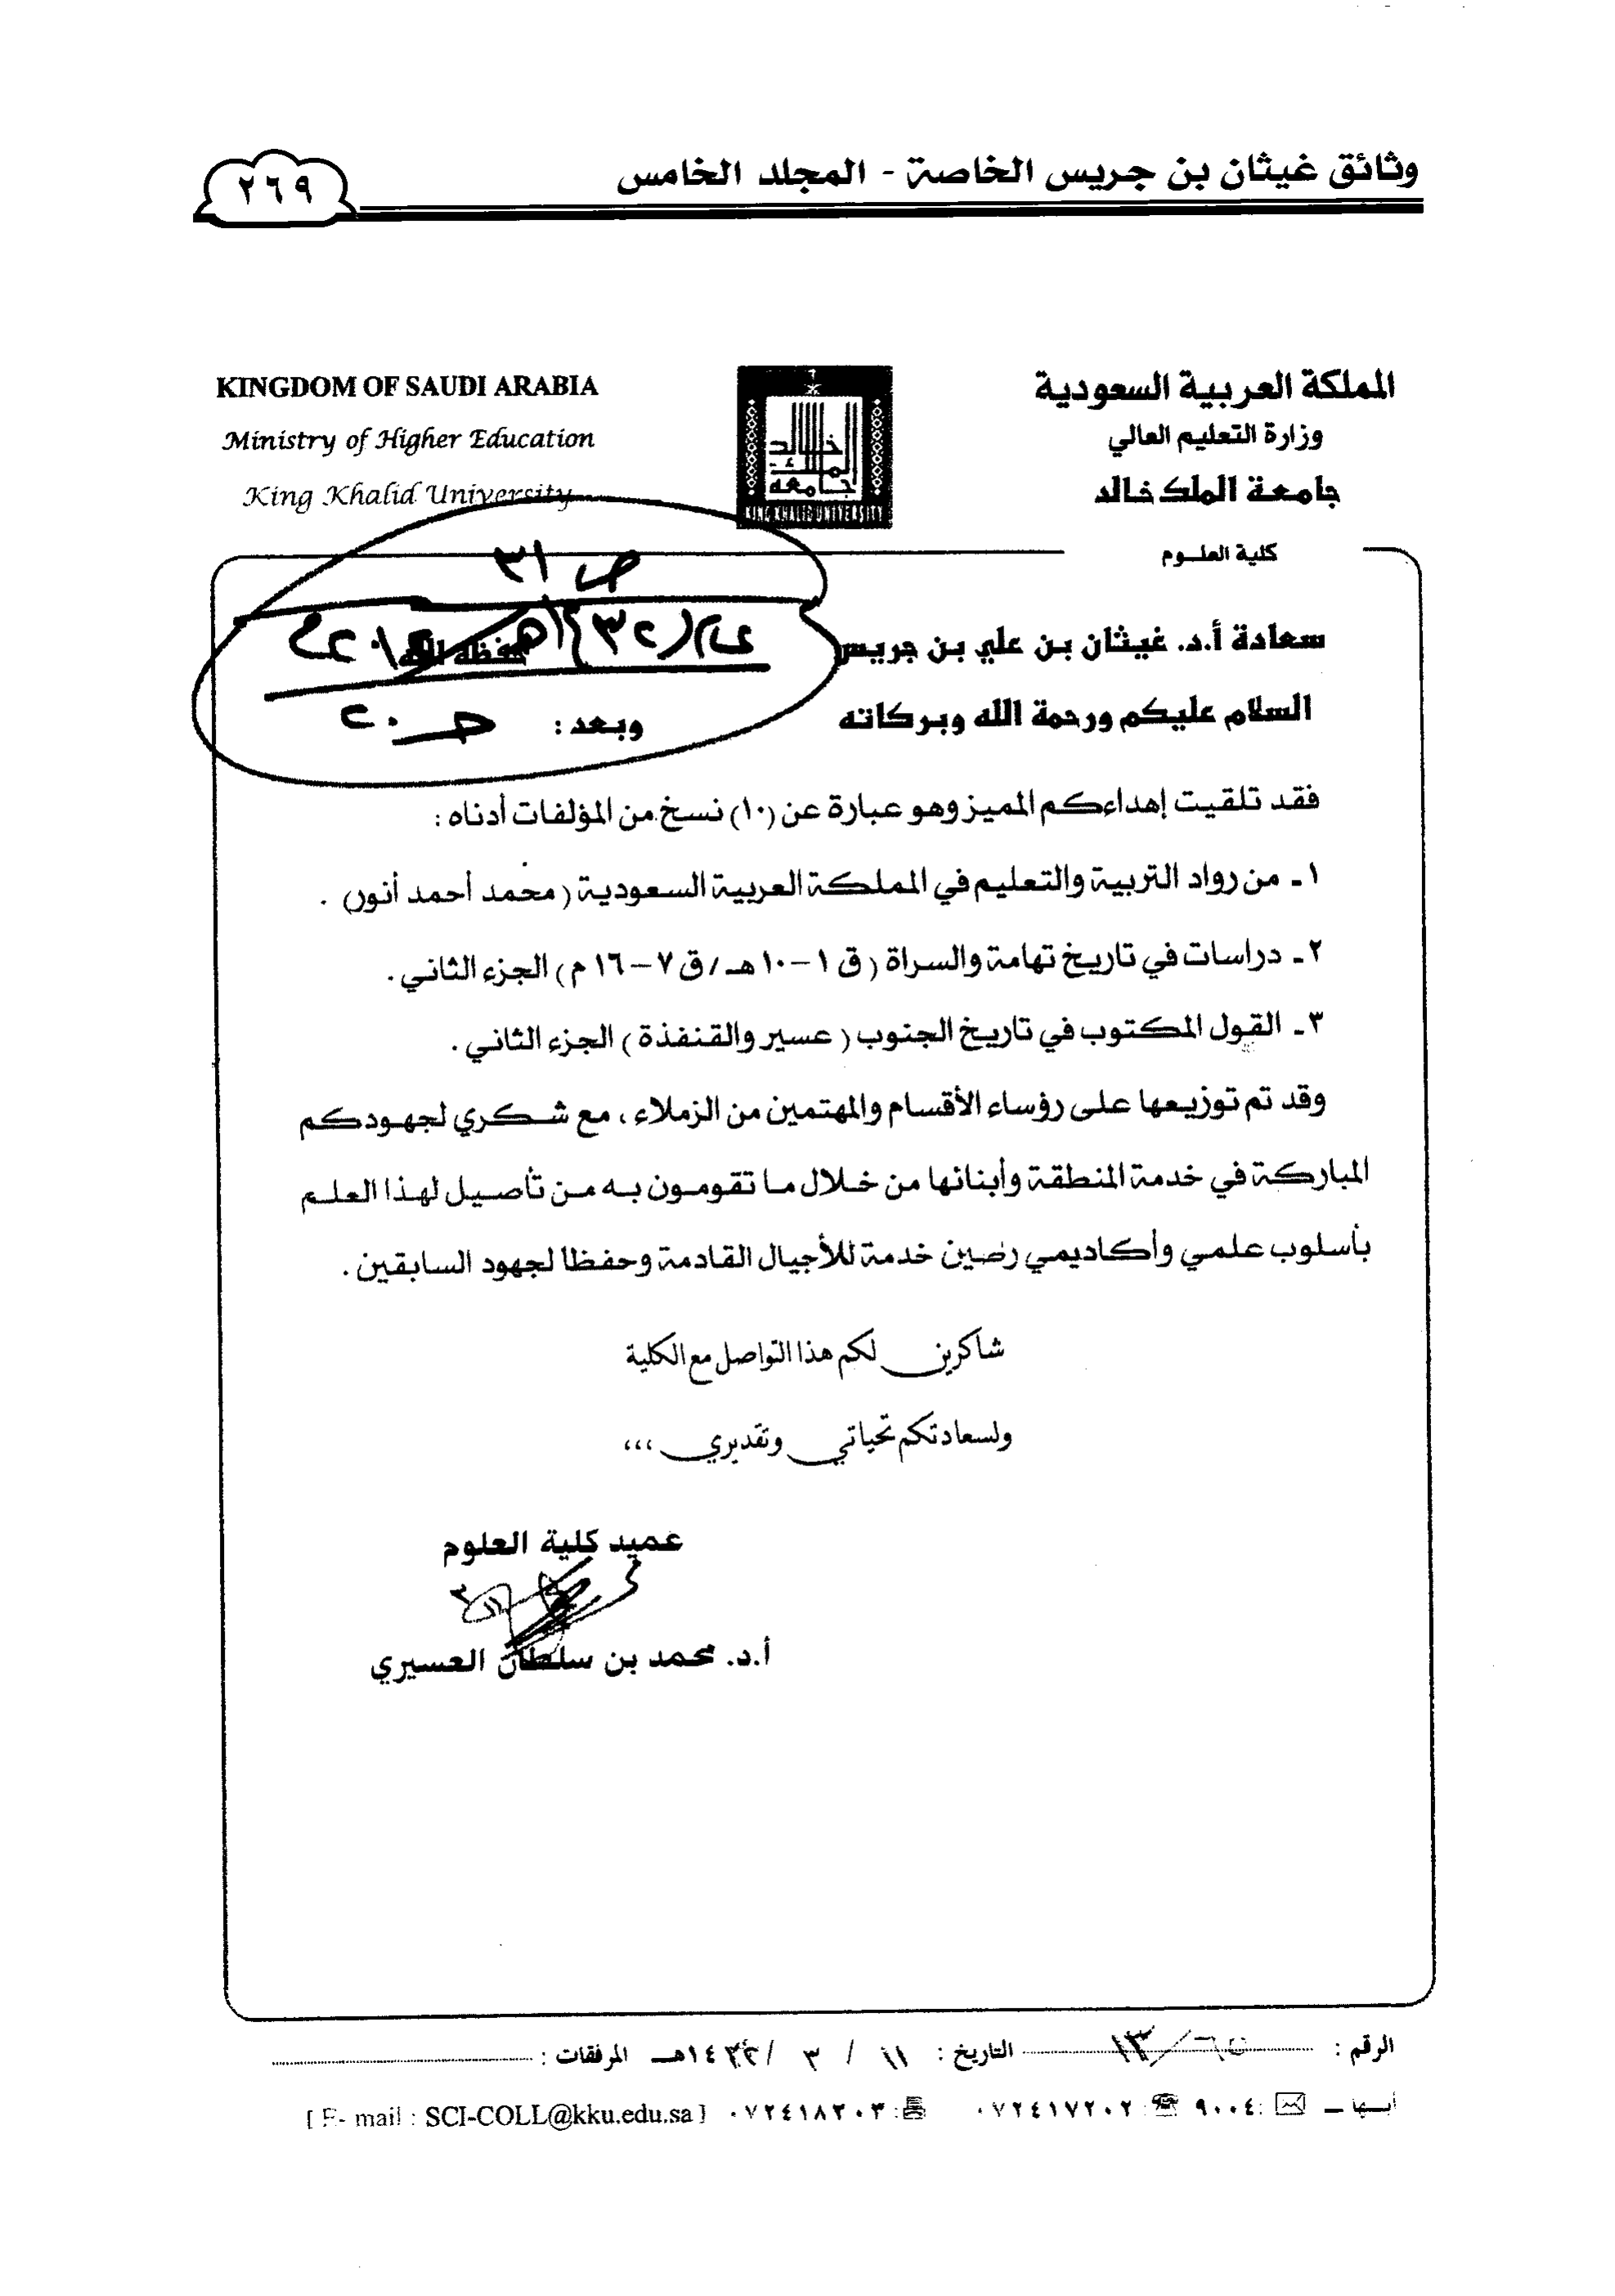 وثائق غيثان بن جريس الخاصة - المجلد الخامس
٢٦٩
المملكة العربية السعودية
وزارة التعليم العالي
جامعة الملك خالد
كلية العلوم
KINGDOM OF SAUDI ARABIA
Ministry of Higher Education
King Khalid University
جامعة الملك خالد
KING KHALID UNIVERSITY
ص ٣١
سعادة أ.د. غيثان بن علي بن جريس حفظه الله
السلام عليكم ورحمة الله وبركاته وبعد :
فقد تلقيت إهداءكم المميز وهو عبارة عن (١٠) نسخ من المؤلفات أدناه :
١ـ من رواد التربية والتعليم في المملكة العربية السعودية ( محمد أحمد أنور) .
٢ـ دراسات في تاريخ تهامة والسراة ( ق ١ – ١٠ هـ / ق ٧ – ١٦ م ) الجزء الثاني .
٣ـ القول المكتوب في تاريخ الجنوب ( عسير والقنفذة ) الجزء الثاني .
وقد تم توزيعها على رؤساء الأقسام والمهتمين من الزملاء ، مع شكري لجهودكم
المباركة في خدمة المنطقة وأبنائها من خلال ما تقومون به من تأصيل لهذا العلم
بأسلوب علمي وأكاديمي رصين خدمة للأجيال القادمة وحفظا لجهود السابقين .
شاكرين لكم هذا التواصل مع الكلية
ولسعادتكم تحياتي وتقديري ،،،
عميد كلية العلوم
أ.د. محمد بن سلطان العسيري
الرقم : التاريخ : ١١ / ٣ / ١٤٣٢هـ المرفقات :
أبـها ــ : ٩٠٠٤ : ٠٧٢٤١٧٢٠٢ : ٠٧٢٤١٨٢٠٣ [ E- mail : SCI-COLL@kku.edu.sa ]